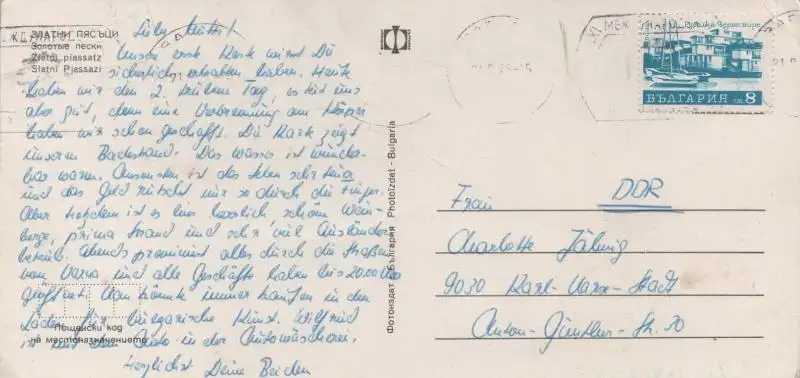 ЗЛАТНИ ПЯСЪЦИ
Золотые пески
Zlatni pjassatz
Slatni Pjassazi
Liebe Mutti!
Unsere erste Karte wirst Du
sicherlich erhalten haben. Heute
haben wir den 2. trüben Tag, es ist uns
aber gut, denn eine Verbrennung am Körper
haben wir schon geschafft. Die Karte zeigt
unseren Badestrand. Das Wasser ist wunder-
bar warm. Ansonsten ist das Leben sehr teuer
und das Geld rutscht nur so durch die Finger.
Aber trotzdem ist es hier herrlich schön, Wein-
berge, prima Strand und sehr viel Ausländer
betrieb. Abends promeniert alles durch die Straßen
von Varna und alle Geschäfte haben bis 20.00 Uhr
geöffnet. Man könnte immer kaufen in den
Läden für bulgarische Kunst. Wilfried
ist mit dem Auto in der Autowäscherei.
Herzlichst Deine Beiden
Пощенски код
на местоназначението
Фотоиздат - България Photoizdat - Bulgaria
БЪЛГАРИЯ 8
DDR
Frau
Charlotte Jähnig
9030 Karl-Marx-Stadt
Anton-Günther-Str. 30